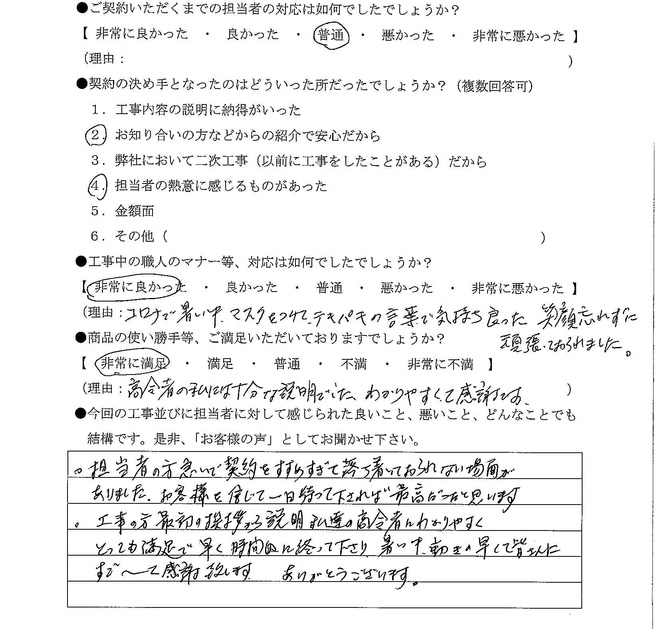 ●ご契約いただくまでの担当者の対応は如何でしたでしょうか？
【 非常に良かった ・ 良かった ・ 普通 ・ 悪かった ・ 非常に悪かった 】
（理由： ）
●契約の決め手となったのはどういった所だったでしょうか？（複数回答可）
１．工事内容の説明に納得がいった
２．お知り合いの方などからの紹介で安心だから
３．弊社において二次工事（以前に工事をしたことがある）だから
４．担当者の熱意に感じるものがあった
５．金額面
６．その他（ ）
●工事中の職人のマナー等、対応は如何でしたでしょうか？
【 非常に良かった ・ 良かった ・ 普通 ・ 悪かった ・ 非常に悪かった 】
（理由：コロナで暑い中、マスクをつけて、テキパキの言葉で気持ち良った 笑顔忘れずに
頑張っておられました。
●商品の使い勝手等、ご満足いただいておりますでしょうか？
【 非常に満足 ・ 満足 ・ 普通 ・ 不満 ・ 非常に不満 】
（理由：高令者の私には十分な説明でした、わかりやすくて感謝です、 ）
●今回の工事並びに担当者に対して感じられた良いこと、悪いこと、どんなことでも
結構です。是非、「お客様の声」としてお聞かせ下さい。
。担当者の方急いで契約をすすめすぎて落ち着いておられない場面が
ありました、お客様を信じて一日待って下されば最高だったと思います
。工事の方最初の挨拶から説明私達の高令者にわかりやすく
とっても満足で早く時間内に終って下さり 暑い中、動きの早くて皆さんに
すご〜く感謝致します ありがとうございます。